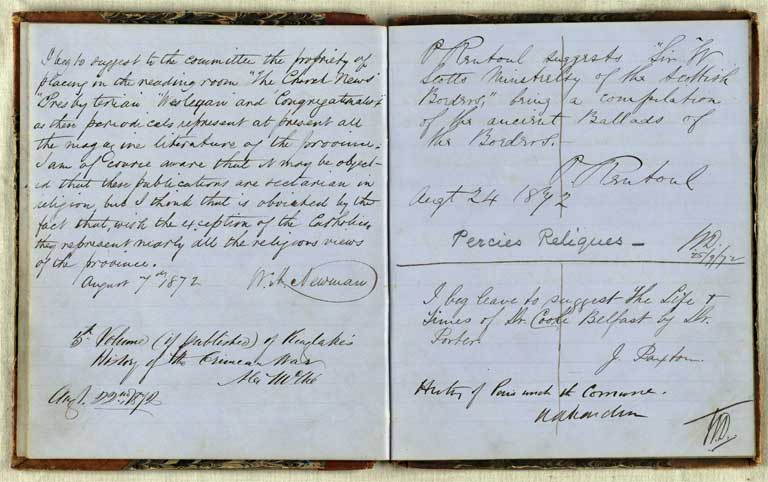 I beg to suggest to the committee the propriety of
placing in the reading room "The Church News"
"Presbyterian" "Wesleyan and Congregationalist"
as these periodicals represent at present all
the magazine literature of the province.
I am of course aware that it may be object-
ed that these publications are sectarian in
religion, but I think that is obviated by the
fact that, with the exception of the Catholics,
they represent nearly all the religious views
of the province.
August 7th 1872 W. A. Newman
5th Volume (if published) of Kinglake's
History of the Crimean War
Augt. 22nd, 1872
P Rentoul suggests "Sir W
Scotts Minstrelsy of the Scottish
Borders," being a compilation
of the ancient Ballads of
the Borders.—
P Rentoul
Augt 24 1872
Percies Reliques —
I beg leave to suggest The Life &
Times of Dr. Cooke Belfast by Dr.
Porter.
J. Paxton.
History of Paris under the Comune.